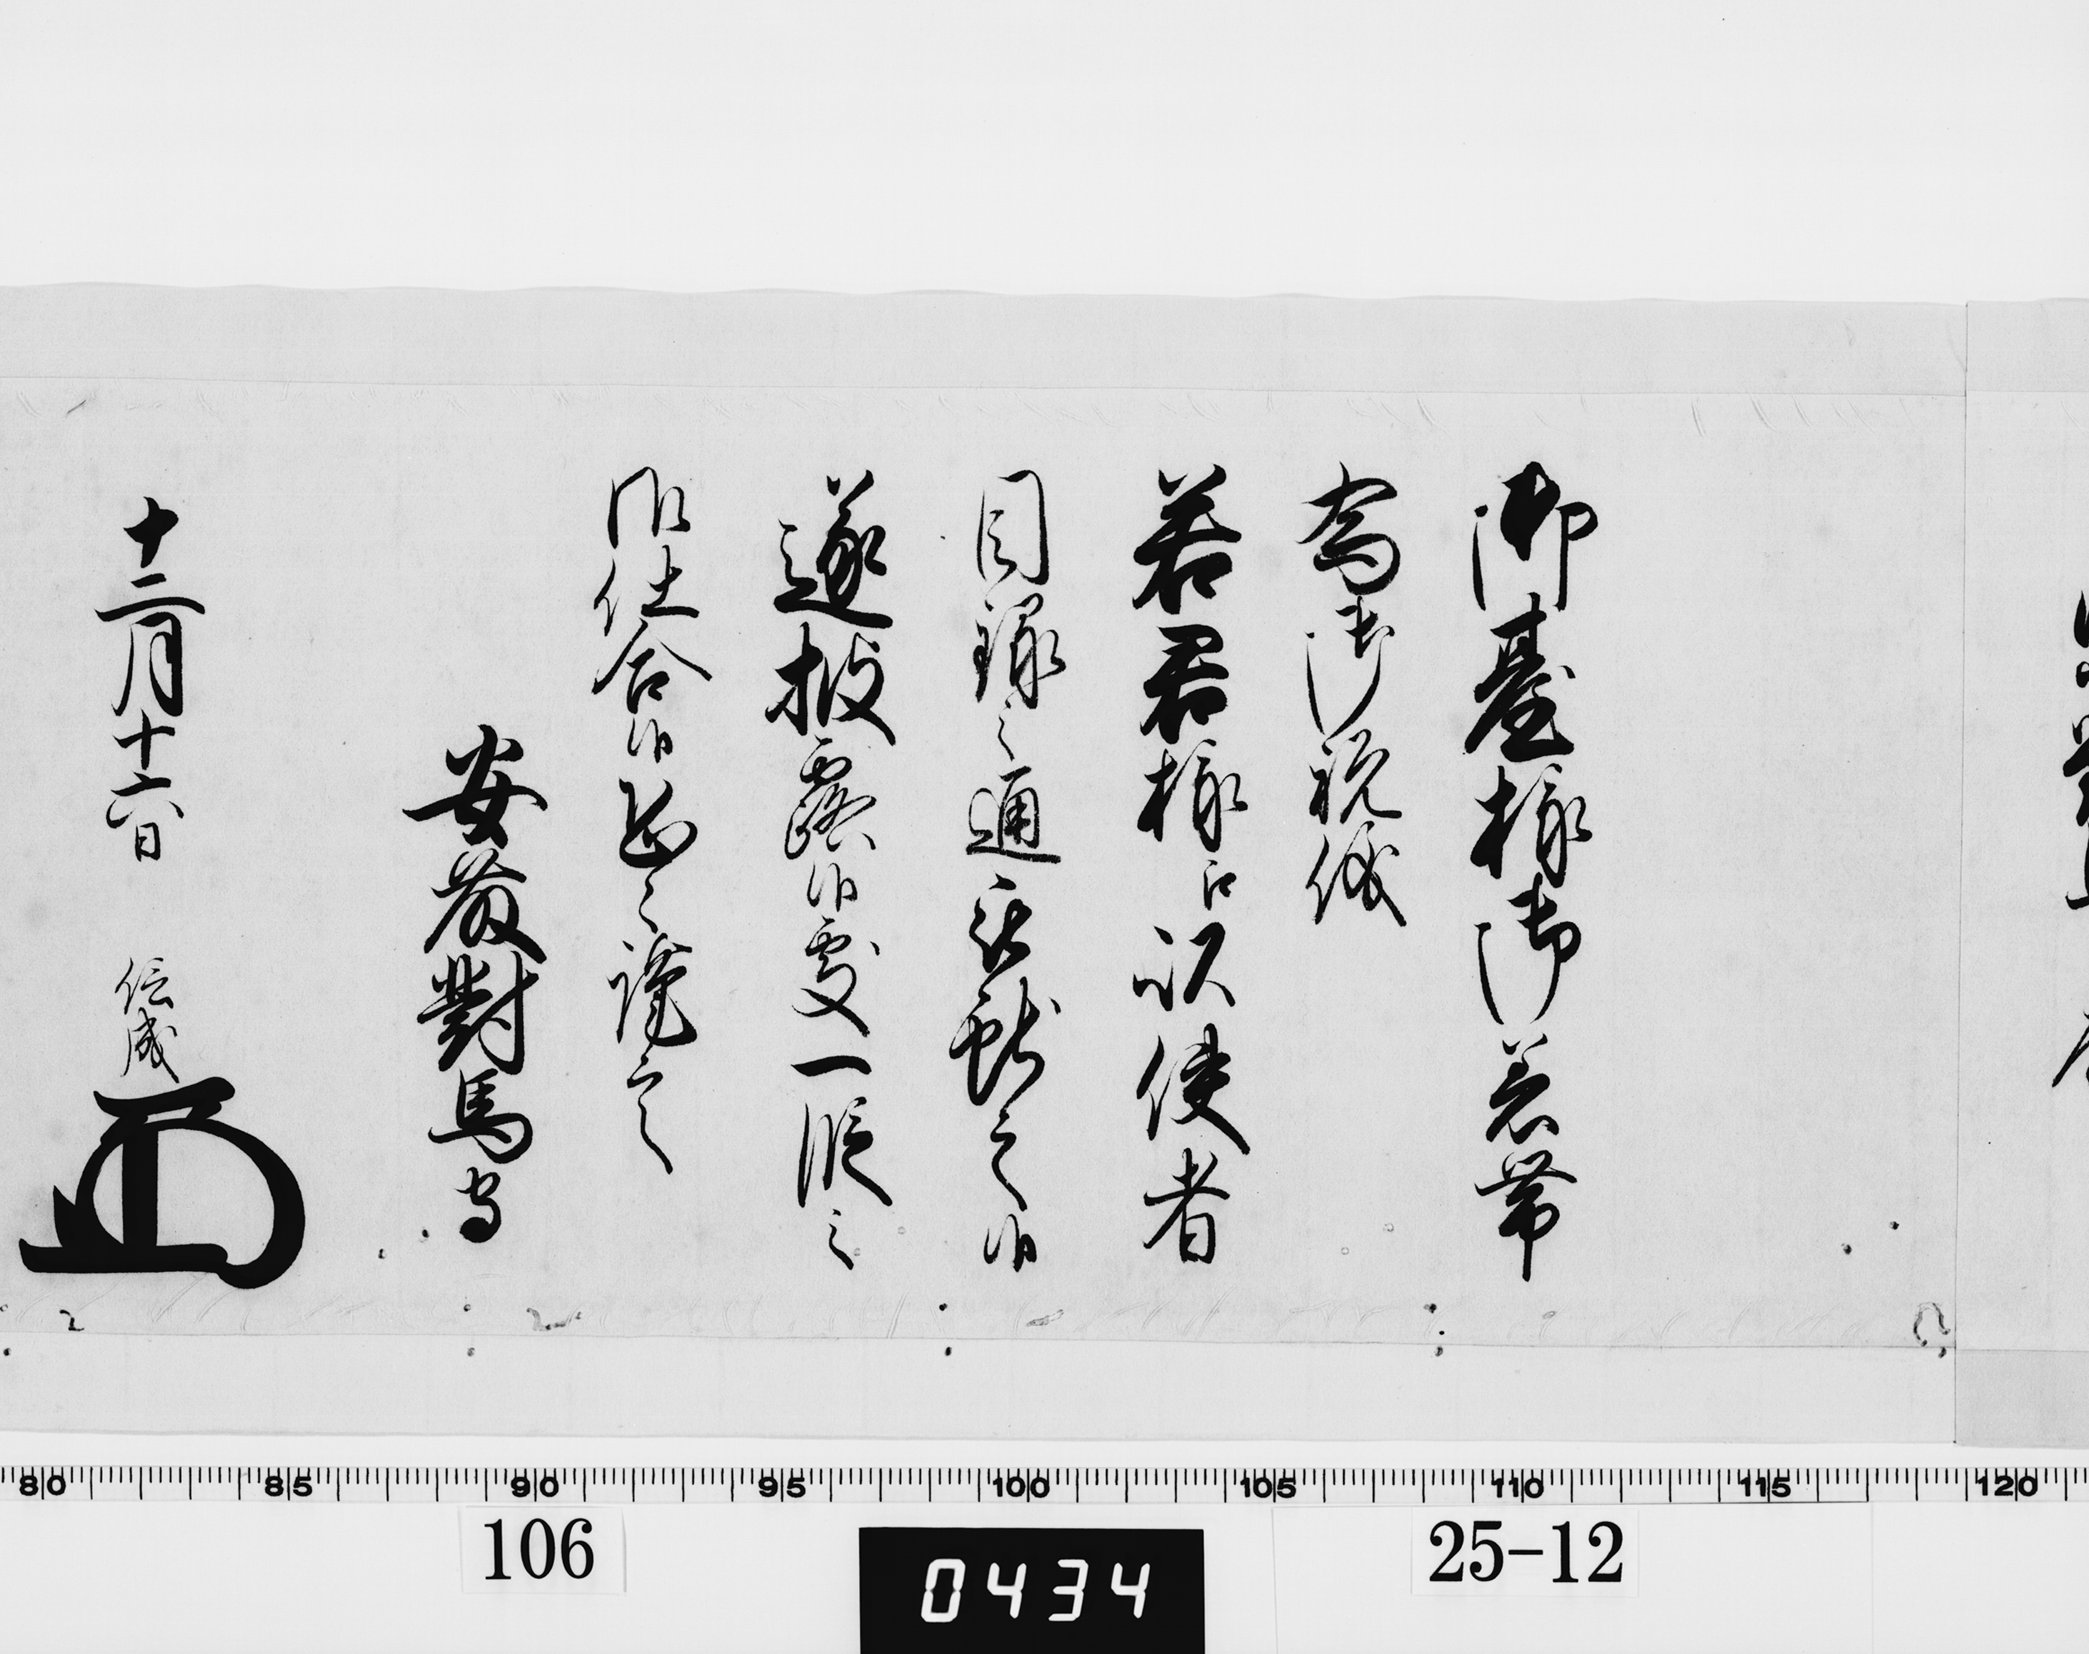 御臺様御着帯
為御祝儀
若君様江以使者
目録之通被献之候
遂披露候處一段之
御仕合候恐々謹言
安藤對馬守
十二月十六日 信成
80 85 90 95 100 105 110 115 120
106
0434
25-12